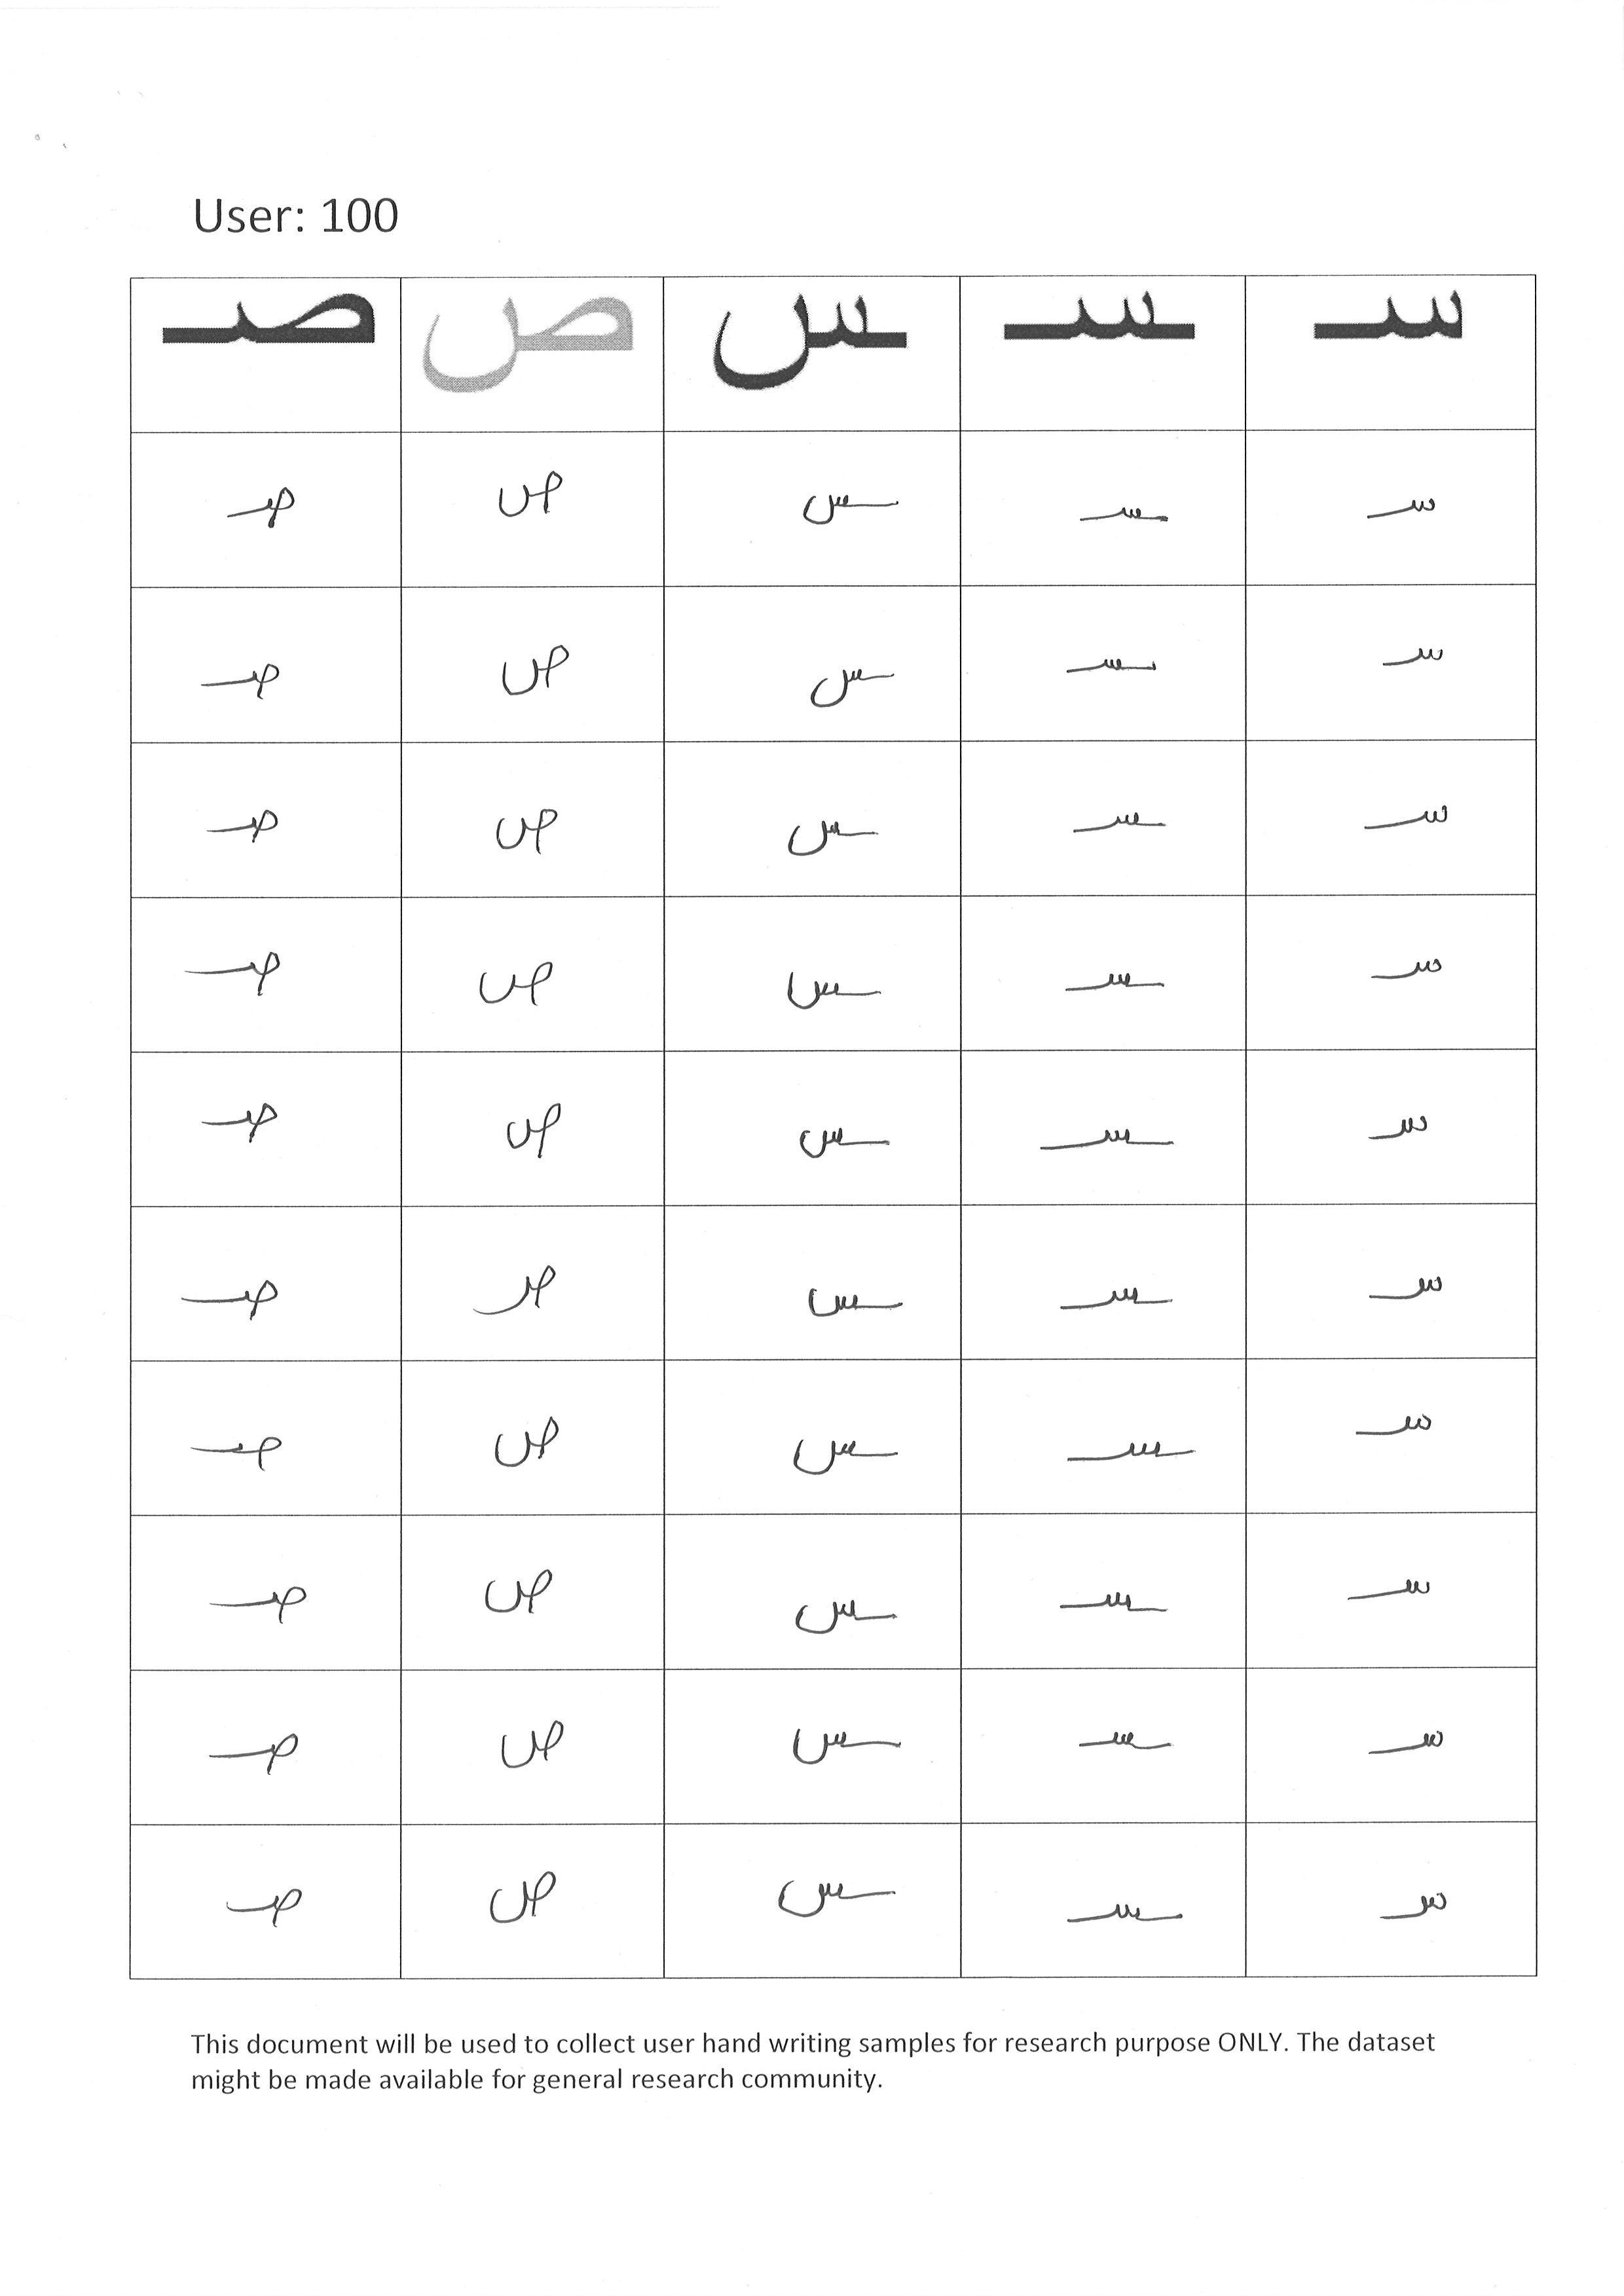 User: 100
سـ ـسـ ـس ص صـ
سـ ـسـ ـس ص صـ
سـ ـسـ ـس ص صـ
سـ ـسـ ـس ص صـ
سـ ـسـ ـس ص صـ
سـ ـسـ ـس ص صـ
سـ ـسـ ـس ص صـ
سـ ـسـ ـس ص صـ
سـ ـسـ ـس ص صـ
سـ ـسـ ـس ص صـ
سـ ـسـ ـس ص صـ
This document will be used to collect user hand writing samples for research purpose ONLY. The dataset
might be made available for general research community.